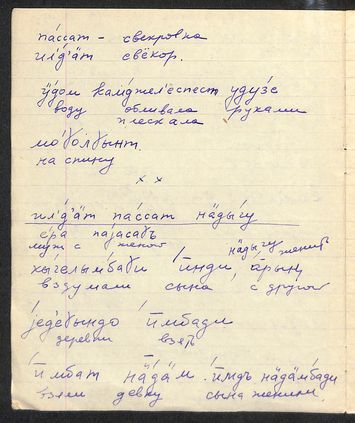 па́ссат – свекровка
ил'д'а̄т свёкор.
ӱдом камджел'еспест удузе
воду обливала руками
плескала
мо́ғолғынт.
на спину
× ×
ил'д'а̄т па́ссат на̄ды́гу
е́ра паjасағъ
муж с женой
на̄дыгу женить
хы́гелымбади ӣнди, а̄рың
вздумали сына с другой
jеде́ғындо ӣмбади
деревни взять
ӣмбат на̄да̄м. ӣмдъ на̄да̄мбади
взяли девку сына женили.